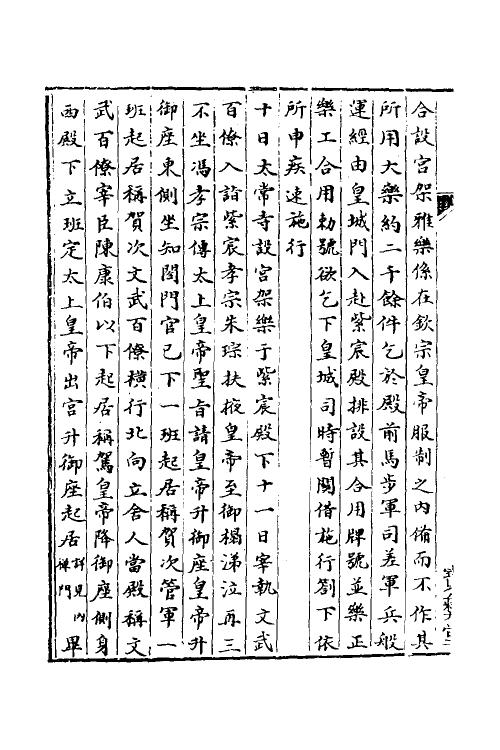 合設宮架雅樂係在欽宗皇帝服制之內備而不作其
所用大樂約二千餘件乞於殿前馬步軍司差軍兵般
運經由皇城門入赴紫宸殿排設其合用牌號並樂正
樂工合用勅號欲乞下皇城司時暫關借施行劄下依
所申疾速施行
十日太常寺設宮架樂于紫宸殿下十一日宰執文武
百僚入詣紫宸孝宗朱琮扶掖皇帝至御榻涕泣再三
不坐馮孝宗傳太上皇帝聖旨請皇帝升御座皇帝升
御座東側坐知閤門官已下一班起居稱賀次管軍一
班起居稱賀次文武百僚橫行北向立舍人當殿稱文
武百僚宰臣陳康伯以下起居稱駕皇帝降御座側身
西殿下立班定太上皇帝出宮升御座起居詳見內禪門畢